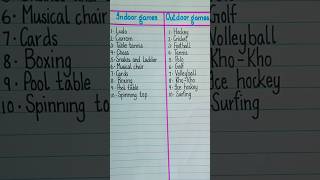 6. Musical chair
7. Cards
8. Boxing
9. Pool table
10. Spinning top
Indoor games
1. Ludo
2. Carrom
3. Table tennis
4. Chess
5. Snakes and ladder
6. Musical chair
7. Cards
8. Boxing
9. Pool table
10. Spinning top
Outdoor games
1. Hockey
2. Cricket
3. Football
4. Tennis
5. Polo
6. Golf
7. Volleyball
8. Kho-Kho
9. Ice hockey
10. Surfing
Golf
Volleyball
Kho-Kho
Ice hockey
Surfing